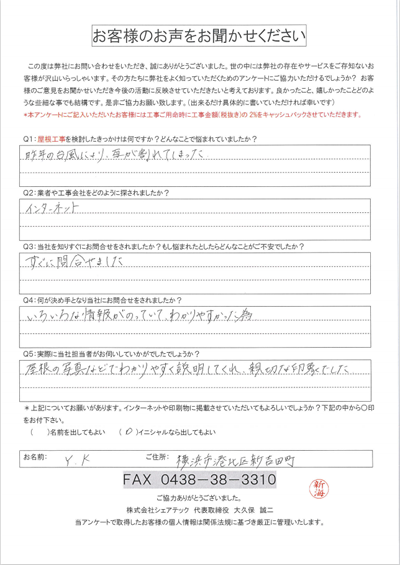 お客様のお声をお聞かせください
この度は弊社にお問い合わせをいただき、誠にありがとうございました。世の中には弊社の存在やサービスをご存知ないお
客様が沢山いらっしゃいます。その方たちに弊社をよく知っていただくためのアンケートにご協力いただけるでしょうか？ お客
様のご意見をお聞かせいただき今後の活動に反映させていただきたいと考えております。良かったこと、嬉しかったことどのよ
うな些細な事でも結構です。是非ご協力お願い致します。（出来るだけ具体的に書いていただければ幸いです）
*本アンケートにご記入いただいたお客様には工事ご用命時に工事金額（税抜き）の2%をキャッシュバックさせていただきます。
Q1：屋根工事を検討したきっかけは何ですか？どんなことで悩まれていましたか？
昨年の台風により、瓦が割れてしまった
Q2：業者や工事会社をどのように探されましたか？
インターネット
Q3：当社を知りすぐにお問合せをされましたか？もし悩まれたとしたらどんなことがご不安でしたか？
すぐに問合せました
Q4：何が決め手となり当社にお問合せをされましたか？
いろいろな情報がのっていて、わかりやすかった為
Q5：実際に当社担当者がお伺いしていかがでしたでしょうか？
屋根の写真などでわかりやすく説明してくれ、親切な印象でした
＊上記についてお願いがあります。インターネットや印刷物に掲載させていただいてもよろしいでしょうか？下記の中から〇印
をお付下さい。
（　）名前を出してもよい　（〇）イニシャルなら出してもよい
お名前： Y.K ご住所： 横浜市港北区新吉田町
FAX 0438-38-3310
ご協力ありがとうございました。
株式会社シェアテック 代表取締役 大久保 誠二
当アンケートで取得したお客様の個人情報は関係法規に基づき厳正に管理いたします。
新海